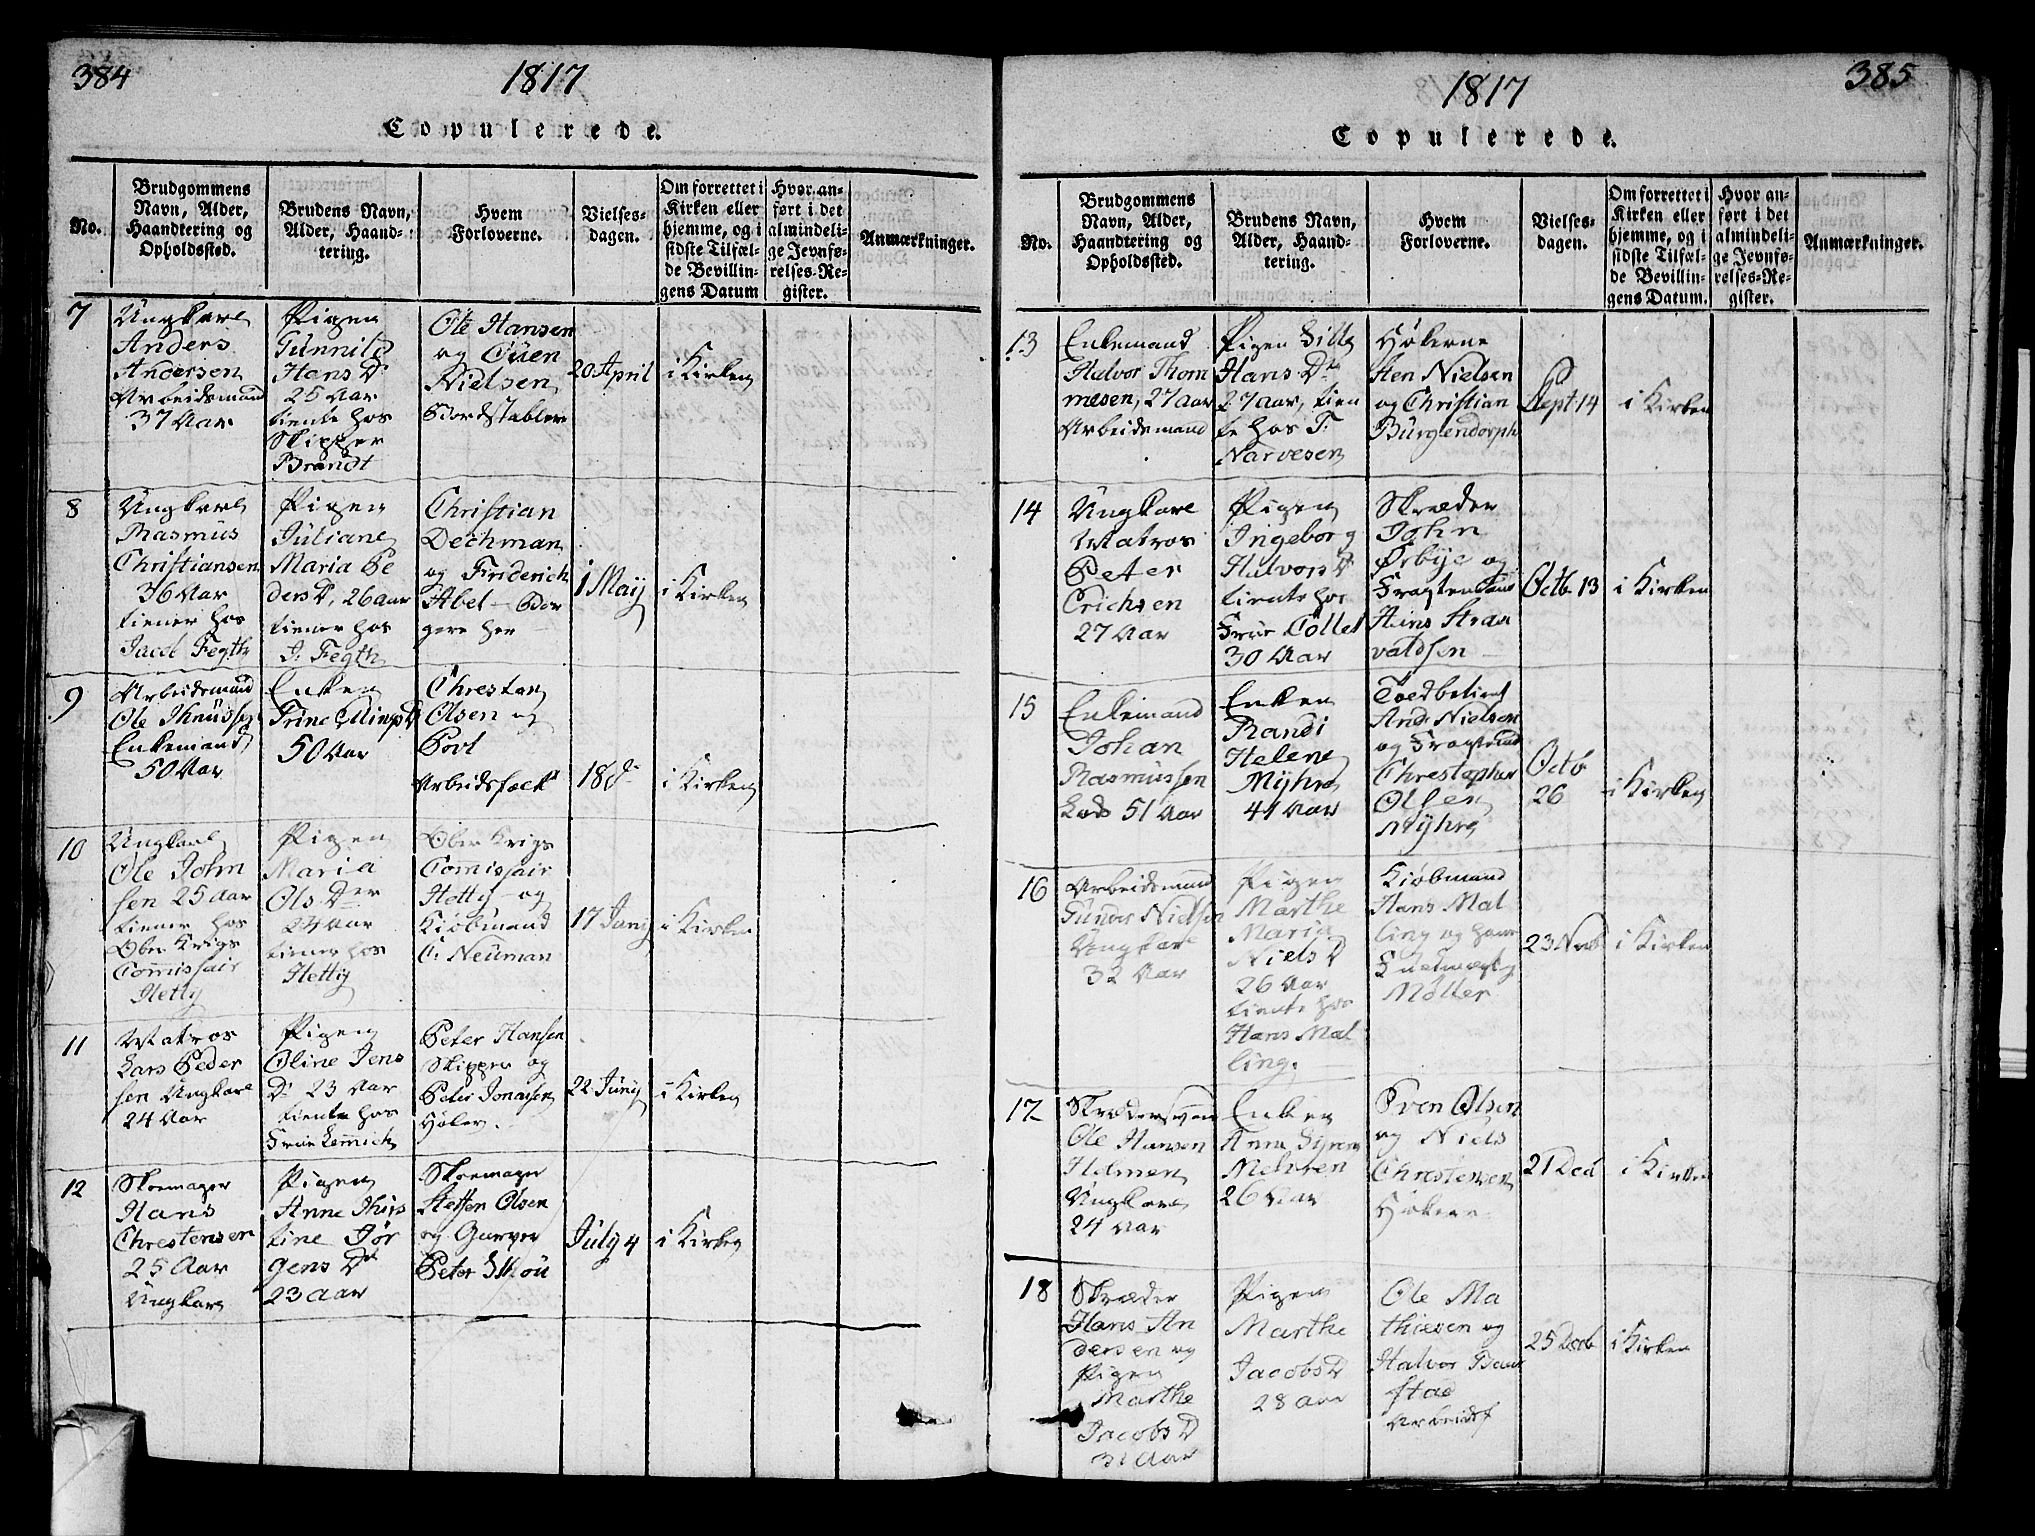 384
1817
Copulerede.
No.
Brudgommens
Navn, Alder,
Haandtering og
Opholdssted.
Brudens Navn,
Alder, Haand-
tering.
Hvem
Forloverne.
Vielses-
dagen.
Om forrettet i
Kirken eller
hjemme, og i
sidste Tilfæl-
de Bevillin-
gens Datum
Hvor an-
ført i det
almindeli-
ge Jevnfø-
relses-Re-
gister.
Anmærkninger.
7
Ungkarl
Anders
Andersen
Arbeidsmand
37 Aar
Pigen
Gunnild
Hans D
25 Aar
tiente hos
Skipper
Brandt
Ole Hansen
og Ouen
Nielsen
Bordstabler
20 April
i Kirken
8
Ungkarl
Rasmus
Christiansen
36 Aar
tiener hos
Jacob Fegth
Pigen
Juliane
Maria Pe
ders D, 26 aar
tiener hos
J: Fegth
Christian
Dechman
og Friderich
Abel - Bor
gere her
1 Maij
i Kirken
9
Arbeidsmand
Ole Knudsen
Enkemand
50 Aar
Enken
Trine
50 Aar
Chresten
Olsen og
Povl
Arbeidsfolk
18 d
i Kirken
10
Ungkarl
Ole John
sen 25 Aar
tiener hos
Ober Krigs
Comissair
Hetty
Pigen
Maria
Ols Dter
24 Aar
tiener hos
Hetty
Ober Krigs
Comissair
Hetty - og
Kiøbmand
C: Neuman
17 Junij
i Kirken
11
Matros
Lars Peder
sen Ungkarl
24 Aar
Pigen
Oline Jens
D: 23 Aar
tiente hos
Frue Lemich
Peter Hansen
Skipper og
Peter Jonassen
Høker.
22 Junij
i Kirken
12
Skoemager
Hans
Chrestensen
25 Aar
Ungkarl
Pigen
Anne Kirs
tine Jør
gens D
23 aar
Skoemager
Steffen Olsen
og Garver
Peter Skou
July 4
i Kirken
385
1817
Copulerede.
No.
Brudgommens
Navn, Alder,
Haandtering og
Opholdssted.
Brudens Navn,
Alder, Haand-
tering.
Hvem
Forloverne.
Vielses-
dagen.
Om forrettet i
Kirken eller
hjemme, og i
sidste Tilfæl-
de Bevillin-
gens Datum.
Hvor an-
ført i det
almindeli-
ge Jevnfø-
relses-Re-
gister.
Anmærkninger.
13
Enkemand
Halvor Thom
mesen, 27 aar
Arbeidsmand
Pigen Sille
Hans D
27 aar, tien
te hos T.
Narvesen
Høkerne
Sten Nielsen
og Christian
Bürglendorph
Sept 14
i Kirken
14
Ungkarl
Matros
Peter
Erichsen
27 Aar
Pigen
Ingeborg
Halvors D
tiente hos
Frue Collet
30 Aar
Skræder
John
Ørbye og
Hans
valdsen
Octb 13
i Kirken
15
Enkemand
Johan
Rasmussen
Lods 51 Aar
Enken
Randi
Helene
Myhre
41 Aar
Toedbetient
And: Nielsen
og
Christopher
Olsen
Myhre
Octb
26
i Kirken
16
Arbeidsmand
Gunder Nielsen
Ungkarl
32 Aar
Pigen
Marthe
Maria
Niels D
26 Aar
tiente hos
Hans Mal
ling.
Kiøbmand
Hans Mal
ling og hans
Fuldmægtig
Møller
23 Novb
i Kirken
17
Skrædersvend
Ole Hansen
Holmen
Ungkarl
24 Aar
Enken
Anna
26 Aar
Sven Olsen
og Niels
Christensen
Høkere
21 Dec
i Kirken
18
Skræder
Hans An
dersen og
Pigen
Marthe
Jacobs D
31 Aar
Pigen
Marthe
Jacobs D
28 aar
Ole Ma
thiesen og
Halvor
stad
Arbeidsf
25 Decb
i Kirken